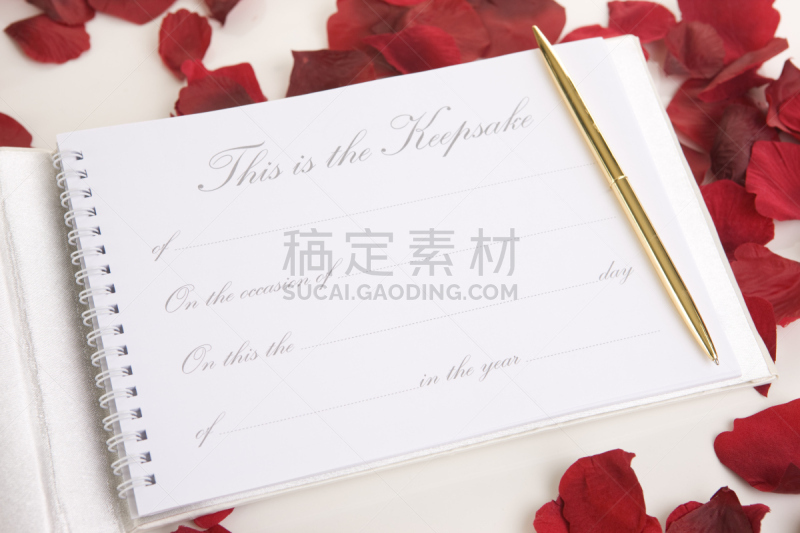 This is the Keepsake
of
On the occasion of
On this the day
of in the year
稿定素材
SUCAI.GAODING.COM